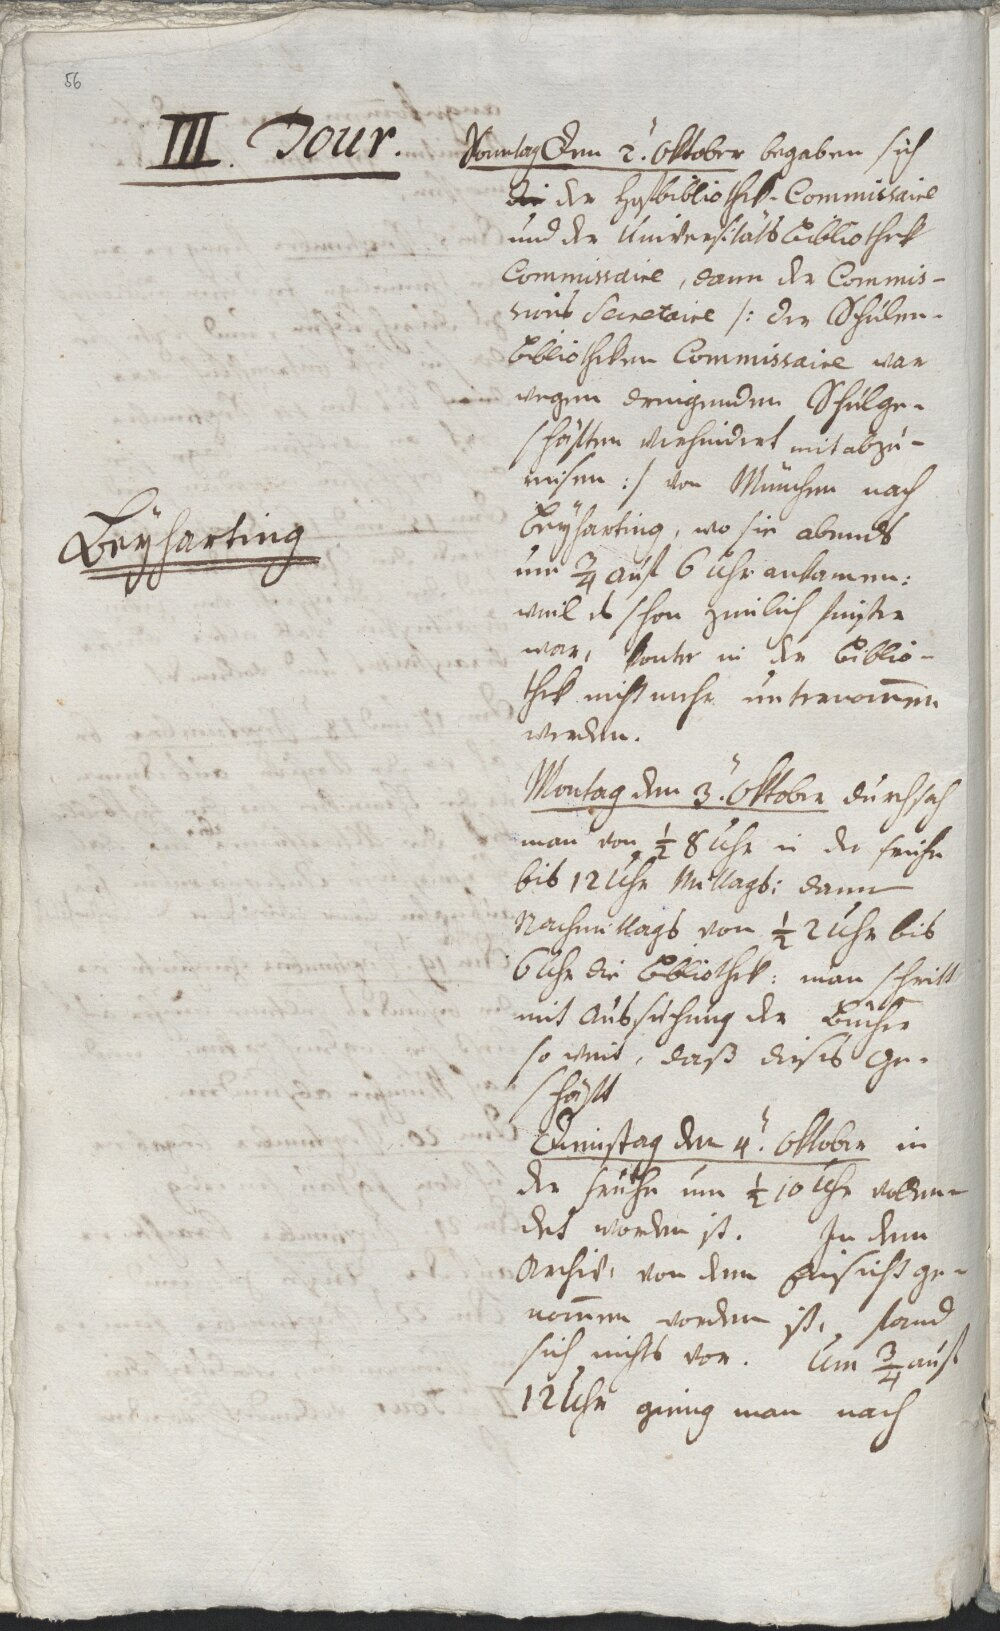 56
III. Tour.
Sonntag den 2. Oktober begaben sich
die der Hofbibliothek-Commissaire
und der Universitäts Bibliothek
Commissaire, dann der Commis-
sions Secretaire /: der Schulen-
Bibliotheken Commissaire war
wegen dringenden Schulge-
schäften verhindert mitabzu-
reisen :/ von München nach
Beyharting
Beyharting, wo sie abends
um 3/4 auf 6 Uhr ankamen:
weil es schon zimlich finster
war, konte in der Biblio-
thek nichts mehr unternom̄en
werden.
Montag den 3. Oktober durchsah
man von 1/2 8 Uhr in der frühe
bis 12 Uhr Mittags: dann
Nachmittags von 1/2 2 Uhr bis
6 Uhr die Bibliothek: man schritt
mit Aussuchung der Bücher
so weit, daß dieses Ge-
schäft
Dienstag den 4. Oktober in
der frühe um 1/2 10 Uhr vollen-
det worden ist. In dem
Archiv, von dem Einsicht ge-
nom̄en worden ist, fand
sich nichts vor. Um 3/4 auf
12 Uhr gieng man nach